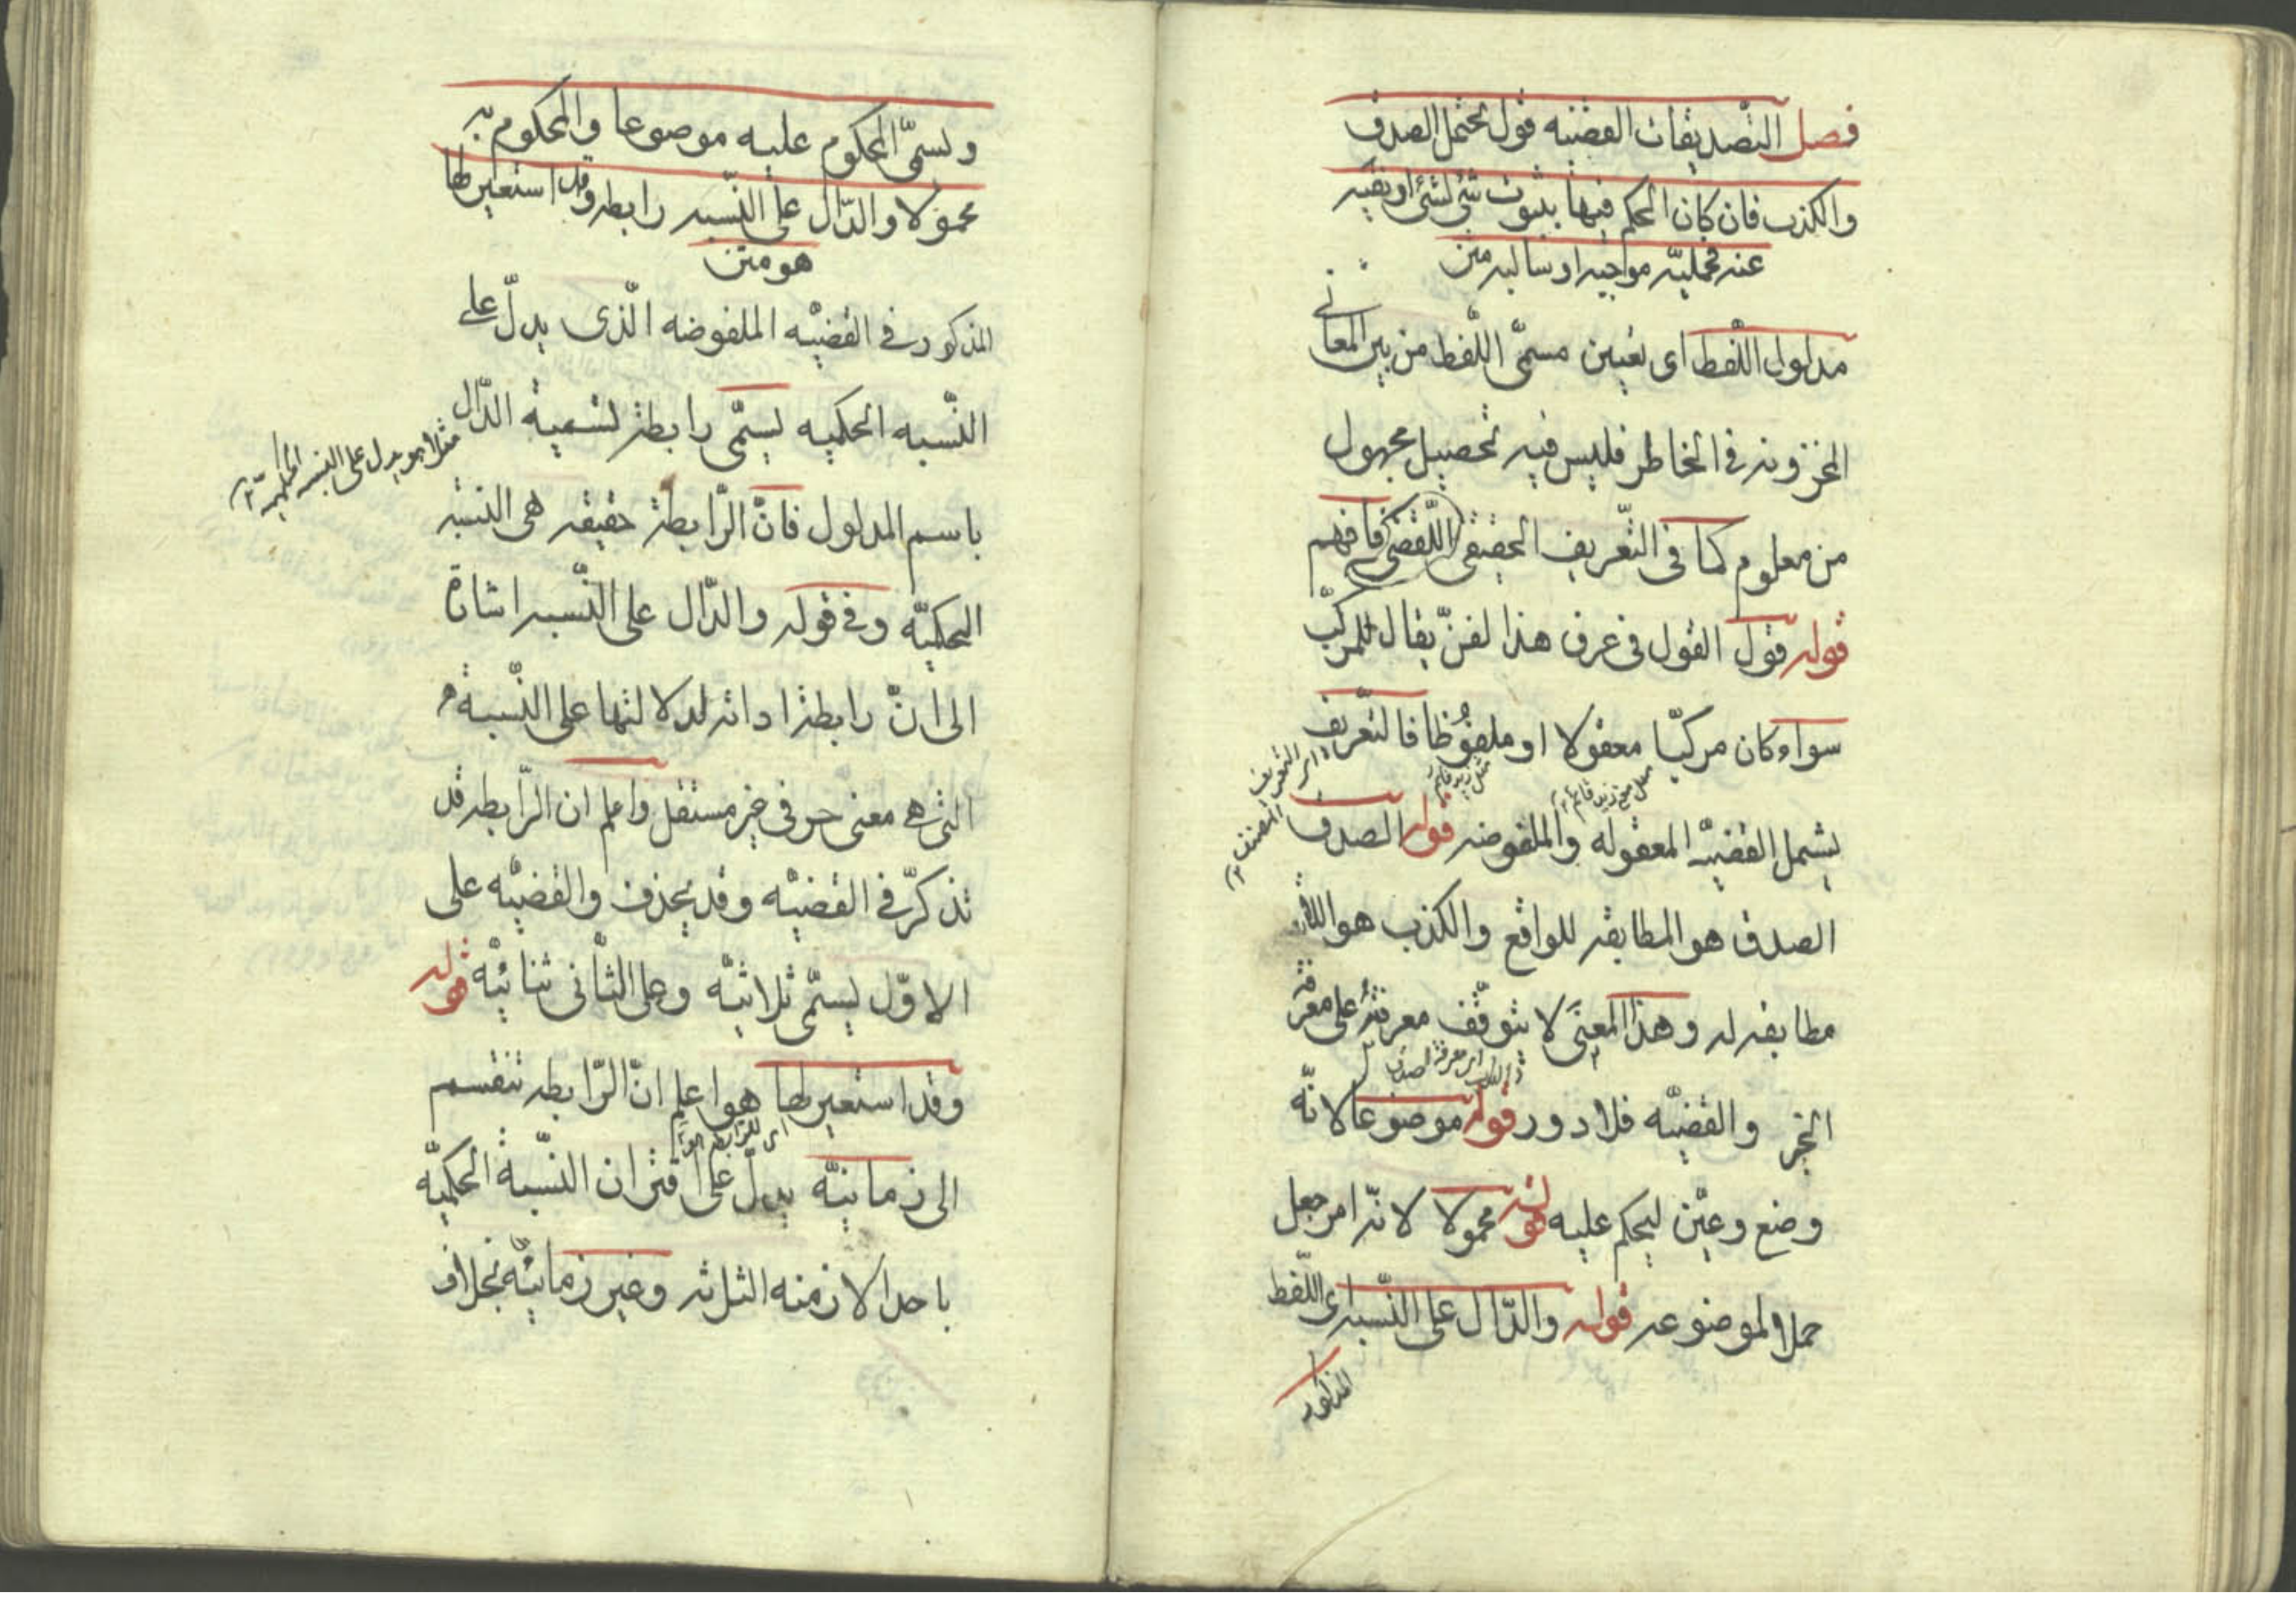 فصل التصديقات القضيه قول يحتمل الصدق
والكذب فان كان الحكم فيها بثبوت شئ لشئ او نفيه
عنه فحمليّه موجبه او سالبه متن
مدلول اللّفظ اى تعيين مسمّى اللّفظ من بين المعانى
المخزونه فى الخاطر فليس فيه تحصيل مجهول
من معلوم كما فى التّعريف الحقيقى اللّفضى فافهم
قوله قول القول فى عرف هذا لفنّ يقال للمركّب
سواء كان مركبّا معقولا او ملفوُظا فالتعّريف
اى التعريف المصنف
يشمل القضيّه المعقوله والملفوضه قوله الصدق
الصدق هو المطابقه للواقع والكذب هو اللا
مطابقه له وهذا المعنَى لا يتوقّف معرفتهُ على معرفة
الخبر والقضيّه فلا دور قوله موضوعا لانّه
وضع وعيّن ليحكم عليه قوله محمولا لانّه امر جعل
حملا لموضوعه قوله والدّال على النّسبه اى اللّفظ
المذكور
ويسمّى المحكوم عليه موضوعا والمحكوم به
محمولا والدّال على النّسبه رابطه وقد استعير لها
هو متن
المذكور فى القضيّه الملفوضه الّذى يدلّ على
النّسبه الحكميه يسمّى رابطة تسمية الدّال
مثلا هو يدل على النسبه
باسم المدلول فانّ الرّابطة حقيقه هى النسبه
الحكميّه وفى قوله والدّال على النّسبه اشارة
الى انّ رابطة اداته لدلالتها على النّسبة
التى هى معنى حرفى غير مستقل واعلم ان الرّابطه قد
تذكرّ فى القضيّه وقد يحذف والقضيّه على
الاوّل يسمّى ثلاثيّه وعلى الثّانى ثنائيّه قوله
وقد استعير لها هو اعلم انّ الرّابطه تنقسم
اى للرابطه
الى زمانيّه يدلّ على اقتران النّسبة الحكميّه
باحد الازمنه الثلثه وغير زمانيّه بخلاف